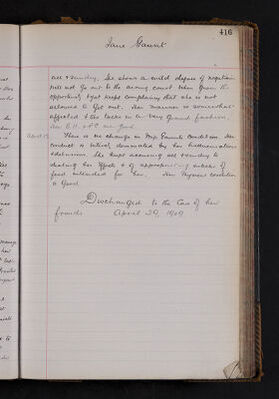 416
Jane Gaunt
all & sundry. She shows a mild degree of negativism
will not go out to the airing court when given the
opportunity & yet keeps complaining that she is not
allowed to get out. Her manner is somewhat
affected & she talks in a very grand fashion.
There is no change in Mrs Gaunts condition. Her
conduct is entirely dominated by her hallucinations
& delusions. She keeps accusing all & sundry of
stealing her effects & of appropriating articles of
food intended for her. Her physical condition
is good.
Discharged to the Care of her
friends April 29, 1909